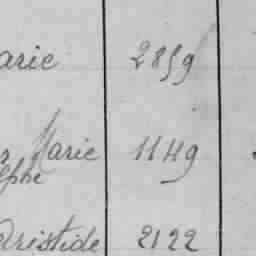 arie 2859
Marie 1149
Aristide 2122